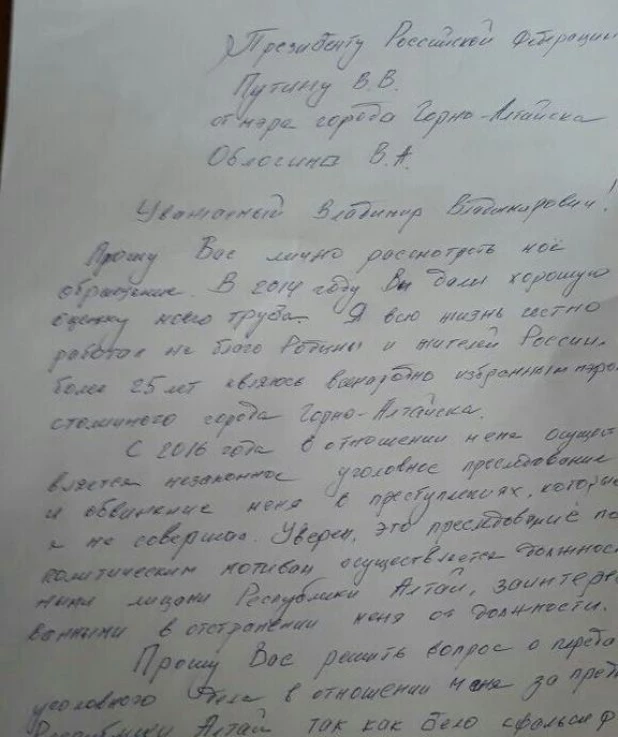 Президенту Российской Федерации
Путину В.В.
от мэра города Горно-Алтайска
Облогина В.А.
Уважаемый Владимир Владимирович!
Прошу Вас лично рассмотреть моё
обращение. В 2014 году Вы дали хорошую
оценку моего труда. Я всю жизнь честно
работал на благо Родины и жителей России.
более 25 лет являюсь всенародно избранным мэро
столичного города Горно-Алтайска.
С 2016 года в отношении меня осущест
вляется незаконное уголовное преследование
и обвинение меня в преступлениях, которые
я не совершал. Уверен, это преследование по
политическим мотивам осуществляется должност
ными лицами Республики Алтай, заинтере
ванными в отстранении меня от должности.
Прошу Вас решить вопрос о переда
уголовного дела в отношении меня за пред
Республики Алтай так как дело сфальсиф